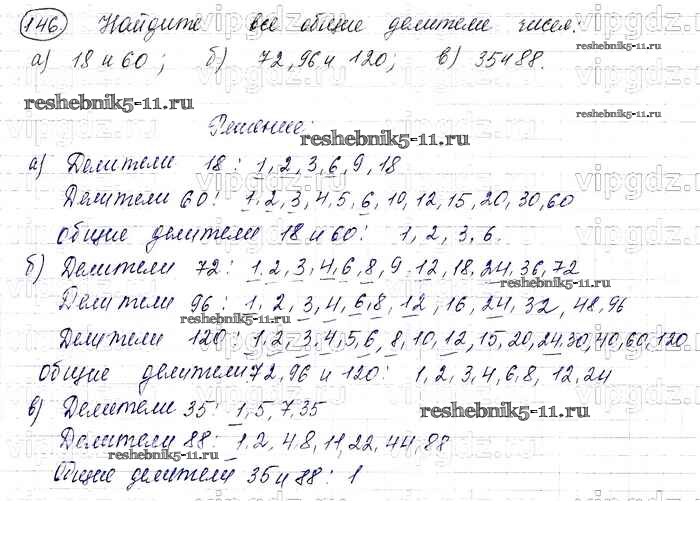 146. Найдите все общие делители чисел:
а) 18 и 60; б) 72, 96 и 120; в) 35 и 88.
reshebnik5-11.ru
reshebnik5-11.ru
Решение:
reshebnik5-11.ru
а) Делители 18: 1, 2, 3, 6, 9, 18
Делители 60: 1, 2, 3, 4, 5, 6, 10, 12, 15, 20, 30, 60
общие делители 18 и 60: 1, 2, 3, 6.
б) Делители 72: 1, 2, 3, 4, 6, 8, 9, 12, 18, 24, 36, 72
reshebnik5-11.ru
Делители 96: 1, 2, 3, 4, 6, 8, 12, 16, 24, 32, 48, 96
reshebnik5-11.ru
Делители 120: 1, 2, 3, 4, 5, 6, 8, 10, 12, 15, 20, 24, 30, 40, 60, 120
общие делители 72, 96 и 120: 1, 2, 3, 4, 6, 8, 12, 24
в) Делители 35: 1, 5, 7, 35
reshebnik5-11.ru
Делители 88: 1, 2, 4, 8, 11, 22, 44, 88
reshebnik5-11.ru
Общие делители 35 и 88: 1
vipgdz.ru